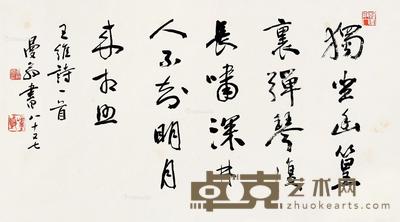 獨坐幽篁
裏彈琴復
長嘯深林
人不知明月
來相照
王維詩一首
曼翁書 八十又七
卓克艺术网
zhuokearts.com